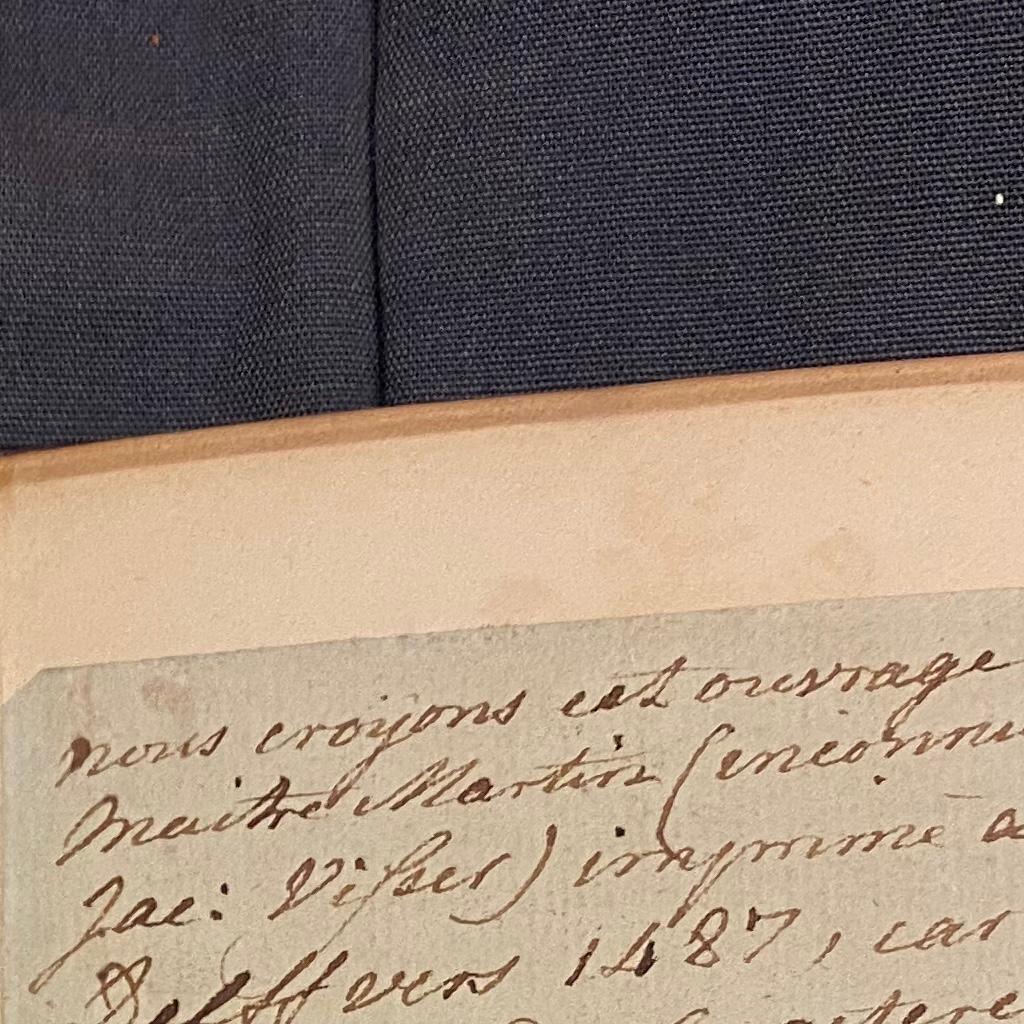 nous croyons cet ouvrage
Maitre Martin (inconnu
Jac: Visser) imprimé a
Delff vers 1487, car